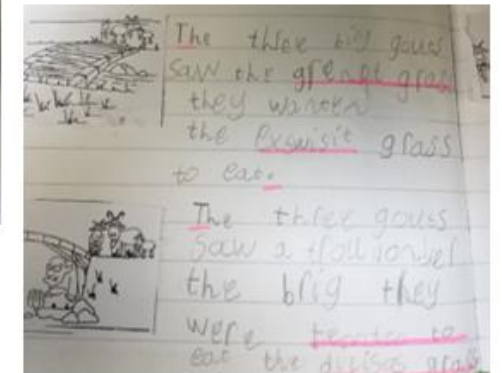 The three big gouts
saw the grenpt grass
they wanten
the exquisit grass
to eat.
The three gouts
Saw a troll onder
the brig they
were to
eat the grass